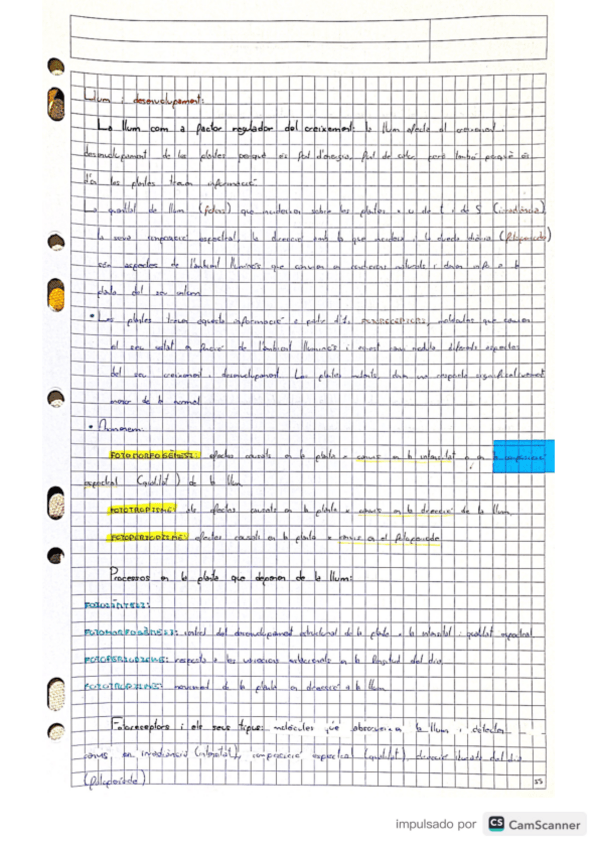 Llum i desenvolupament:
La llum com a factor regulador del creixement: la llum afecta al creixement i
desenvolupament de les plantes perquè és font d'energia, font de calor però també perquè és
d'on les plantes treuen informació.
La quantitat de llum (fotons) que incideixen sobre les plantes x u de t i de S (irradiància)
la seva composició espectral, la direcció amb la que incideix i la durada diària (fotoperíode)
són aspectes de l'ambient lluminós que canvien en condicions naturals i donen info a la
planta del seu entorn
• Les plantes tenen aquesta informació a partir d'1s FOTORECEPTORS, molècules que canvien
el seu estat en funció de l'ambient lluminós i aquest canvi modifica diferents aspectes
del seu creixement i desenvolupament. Les plantes mutants, donen una resposta significativament
menor de la normal
• Anomenem:
FOTOMORFOGÈNESI: efectes causats en la planta x canvis en la intensitat o en la composició
espectral (qualitat) de la llum
FOTOTROPISME: els efectes causats en la planta x canvis en la direcció de la llum
FOTOPERIODISME: efectes causats en la planta x canvis en el fotoperíode
Processos en la planta que depenen de la llum:
FOTOSÍNTESI:
FOTOMORFOGÈNESI: control del desenvolupament estructural de la planta x la intensitat i qualitat espectral
FOTOPERIODISME: resposta a les variacions estacionals en la longitud del dia
FOTOTROPISME: moviment de la planta en direcció a la llum
Fotoreceptors i els seus tipus: molècules que absorveixen la llum i detecten
canvis en irradiància (intensitat), composició espectral (qualitat), direcció i durada del dia
(fotoperíode)
55
impulsado por CS CamScanner